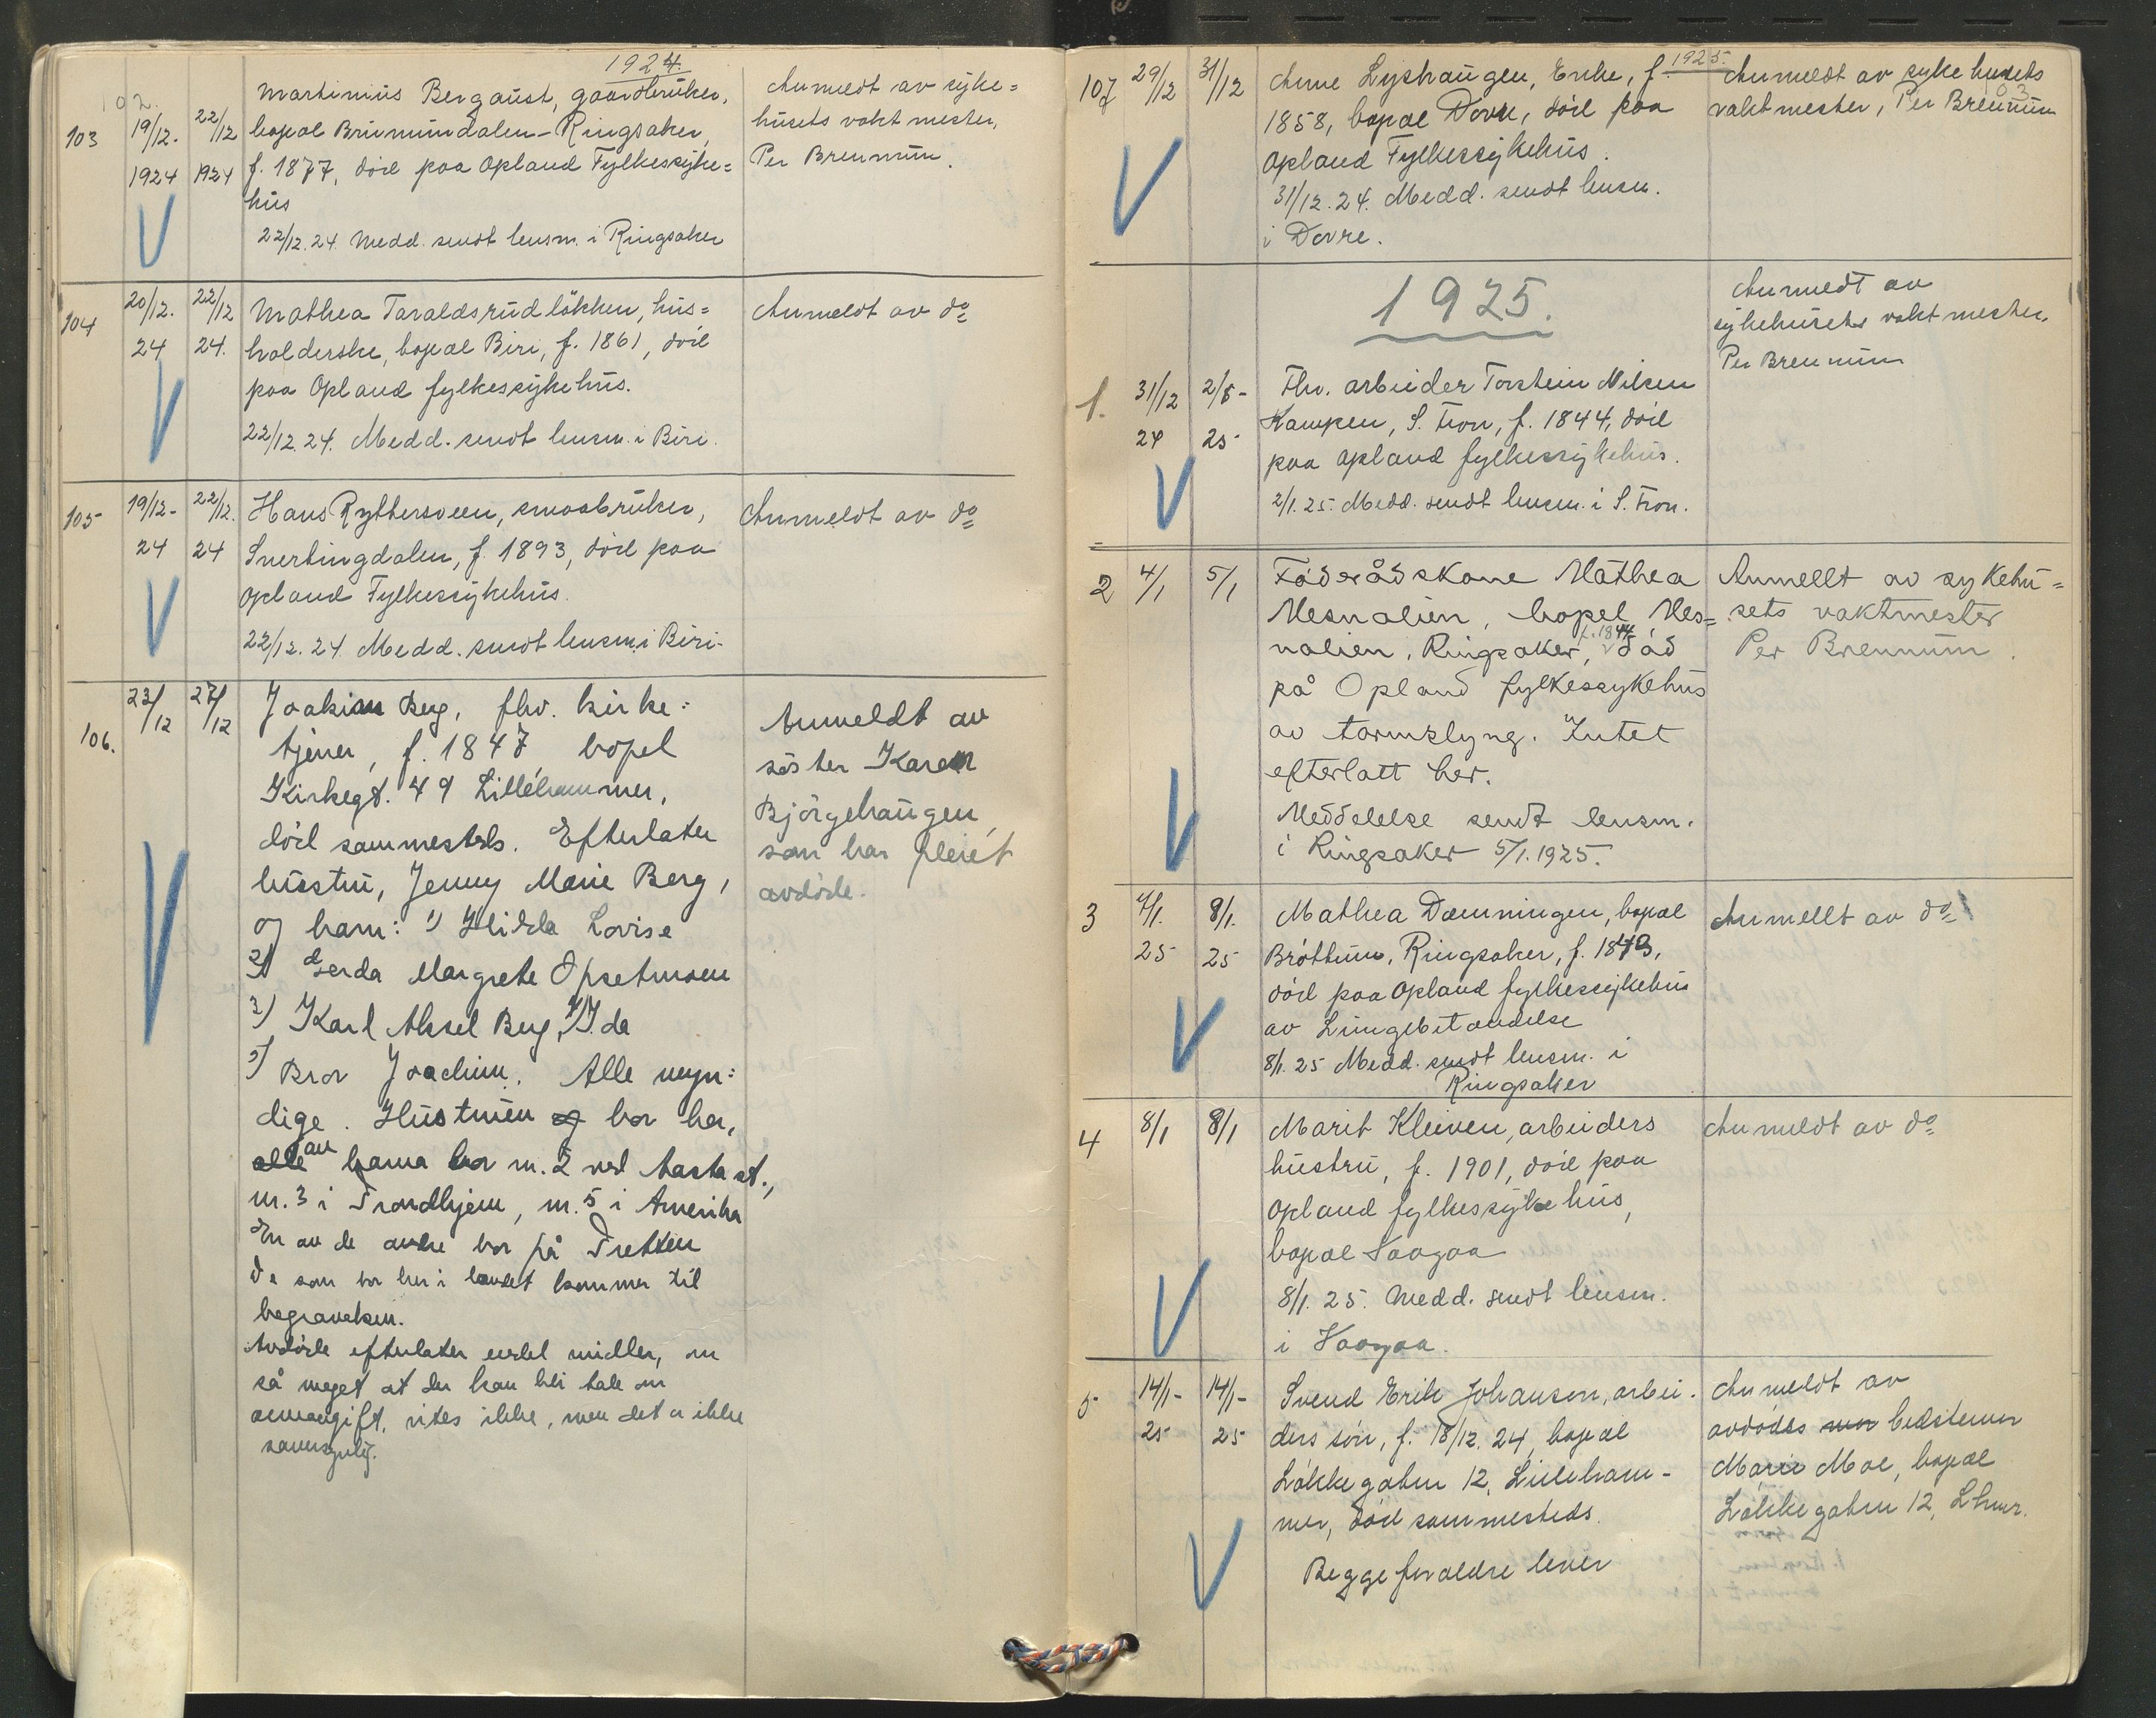 1924.
102.
103
19/12.
1924
22/12
1924
Martinius Bergaust, gaardbruker,
bopæl Brumunddalen - Ringsaker,
f. 1877, död paa Opland Fylkessyke=
hus
22/12.24 Medd. sendt lensm. i Ringsaker
Anmeldt av syke=
husets vaktmester,
Per Brennum.
104
20/12.
24
22/12
24.
Mathea Taraldsrudlökken, hus=
holderske, bopæl Biri, f. 1861, död
paa Opland fylkessykehus.
22/12.24. Medd. sendt lensm. i Biri.
Anmeldt av do
105
19/12-
24
22/12.
24
Hans Rythersveen, smaabruker,
Snertingdalen, f. 1893, död paa
Opland Fylkessykehus.
22/12.24 Medd. sendt lensm. i Biri-
Anmeldt av do
106.
23/12
27/12
Joakim Berg, fhv. kirke=
tjener, f. 1847, bopel
Kirkegt. 49 Lillehammer,
död sammesteds. Efterlater
hustru, Jenny Marie Berg,
og barn: 1) Hilda Lovise
2) Gerda Margrete Opsetmoen
3) Karl Aksel Berg, 4) Ida
5) Bror Joachim. Alle myn=
dige. Hustruen og bor her,
alle av barna bor nr. 2 ved Aasta st.,
nr. 3 i Trondhjem, nr. 5 i Amerika
En av de andre bor på Tretten
De som bor her i landet kommer til
begravelsen.
Avdöde efterlater endel midler, om
så meget at der kan bli tale om
arveavgift, vites ikke, men det er ikke
usansynlig.
Anmeldt av
söster Karen
Björgehaugen,
som har pleiet
avdöde.
1925.
103
107
29/12
31/12
Anne Lyshaugen, Enke, f.
1858, bopæl Dovre, död paa
Opland Fylkessykehus.
31/12.24. Medd. sendt lensm.
i Dovre.
Anmeldt av sykehusets
vaktmester, Per Brennum
1925.
1.
31/12
24
2/1-
25
Fhv. arbeider Torstein Nilsen
Kampen, S. Fron, f. 1844, död
paa Opland fylkessykehus.
2/1.25. Medd. sendt lensm. i S. Fron.
Anmeldt av
sykehusets vaktmester,
Per Brennum
2
4/1
5/1
Föderådskone Mathea
Mesnalien, bopel Mes=
nalien, Ringsaker, f. 1844 död
på Opland fylkessykehus
av tarmslyng. Intet
efterlatt her.
Meddelelse sendt lensm.
i Ringsaker 5/1.1925.
Anmellt av sykehu=
sets vaktmester
Per Brennum.
3
7/1.
25
8/1.
25
Mathea Dæmningen, bopæl
Bröttum, Ringsaker, f. 1843,
död paa Opland fylkessykehus
av Lungebetændelse
8/1.25 Medd. sendt lensm. i
Ringsaker
Anmellt av do
4
8/1
8/1
Marit Kleiven, arbeiders
hustru, f. 1901, död paa
Opland fylkessykehus,
bopæl Vaagaa
8/1.25. Medd. sendt lensm.
i Vaagaa.
Anmeldt av do
5
14/1-
25
14/1-
25
Svend Erik Johansen, arbei-
ders sön, f. 18/12.24, bopæl
Lökkegaten 12, Lilleham-
mer, död sammesteds.
Begge foraldre lever
Anmeldt av
avdödes mor bedstemor
Marie Moe, bopæl
Lökkegaten 12, Lhmr.